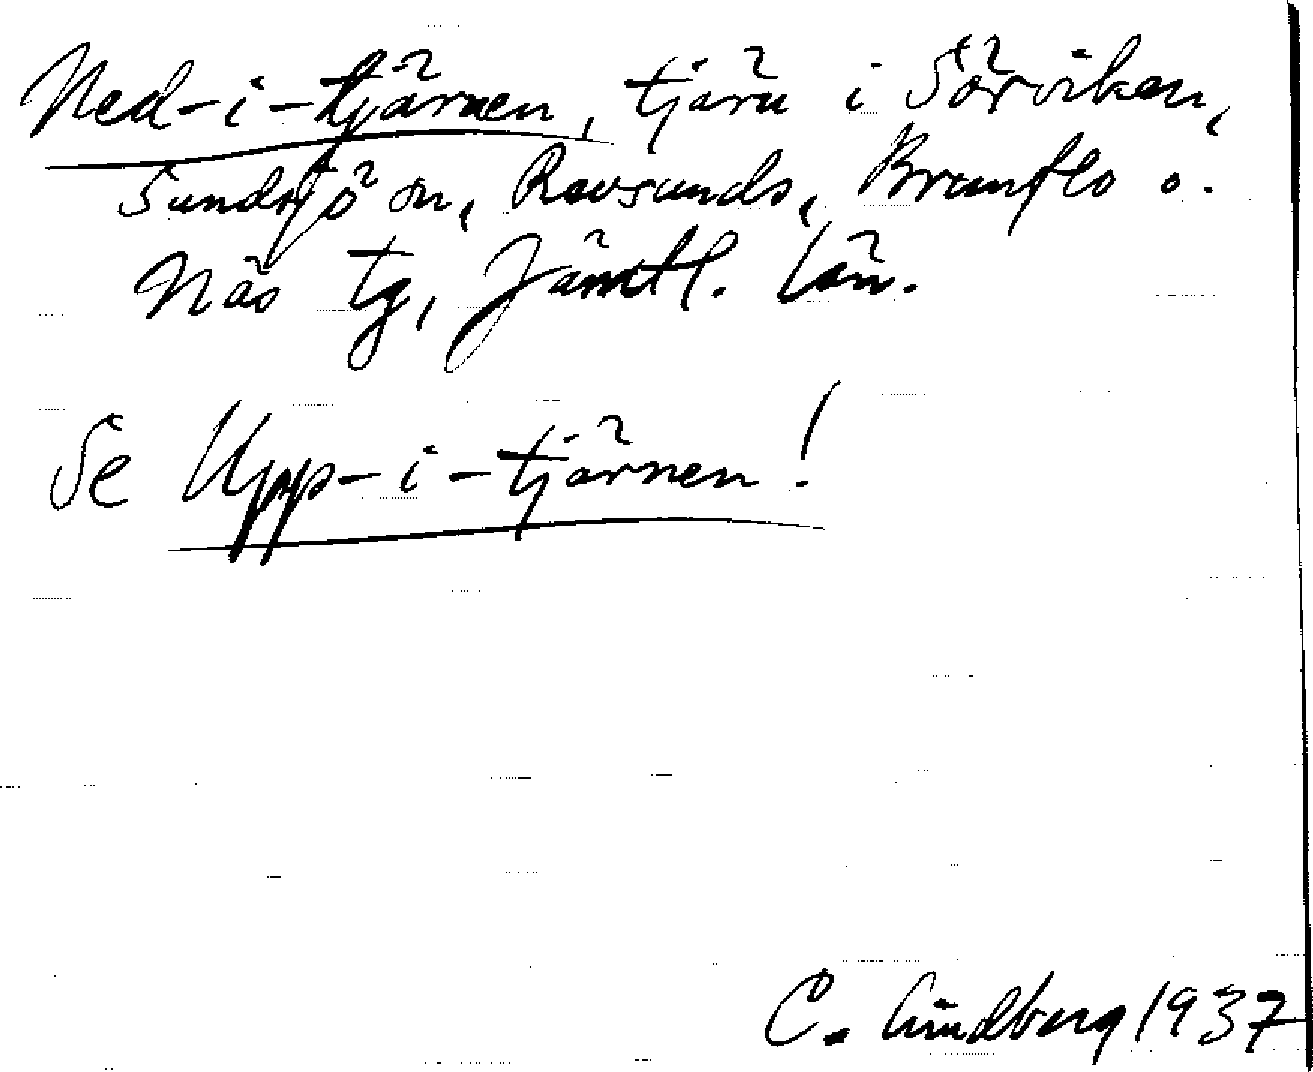 Ned-i-tjärnen, tjärn i Sörviken,
Sundsjö sn, Revsunds, Brunflo o.
Näs tg, Jämtl. län.
Se Upp-i-tjärnen!
C. Lindberg 1937